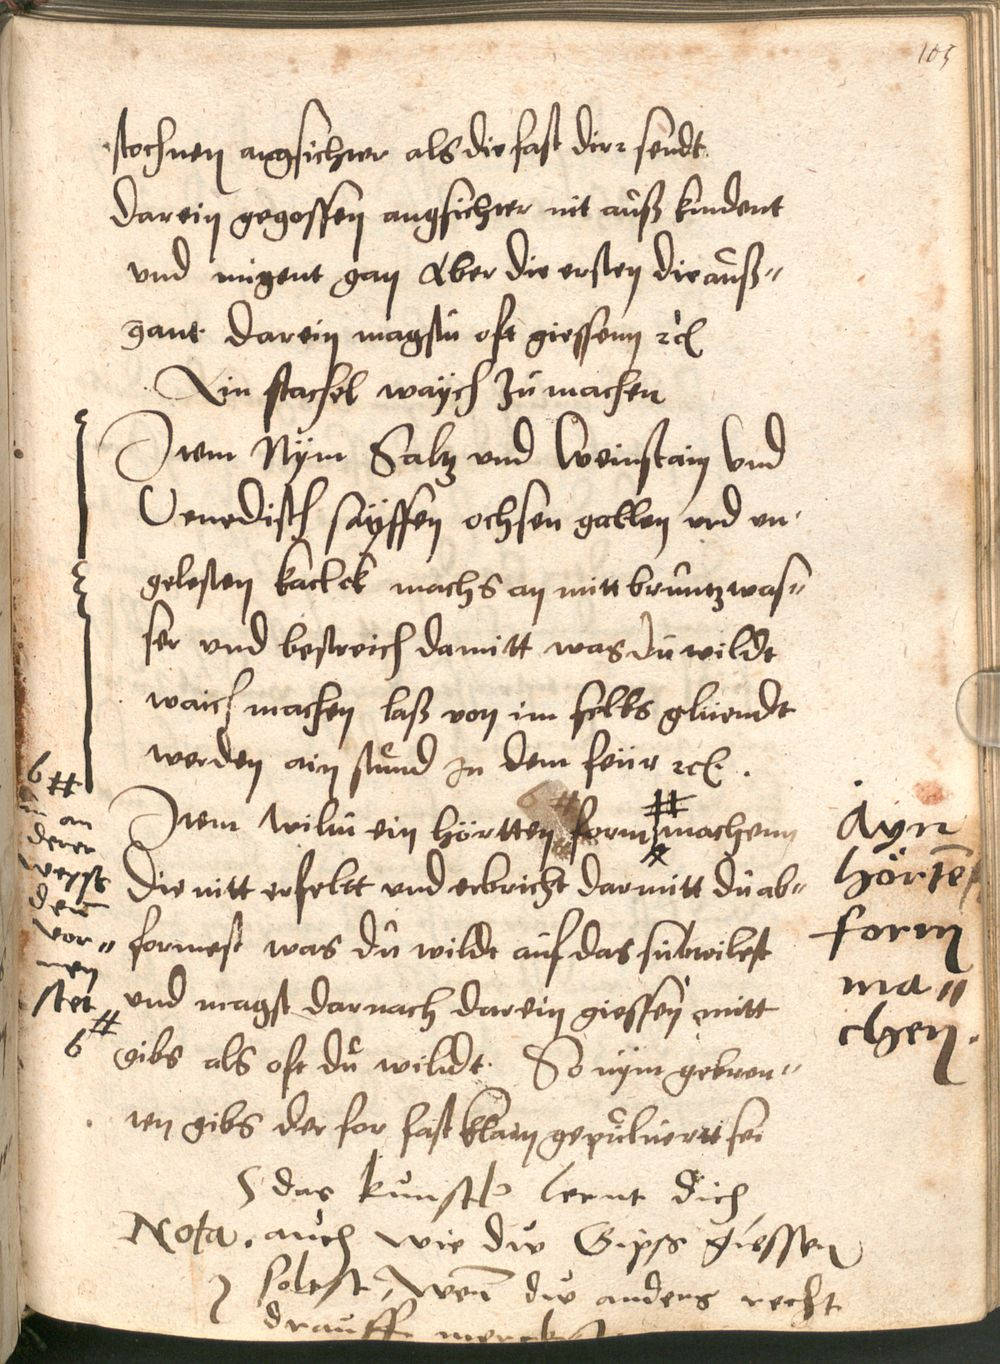 105
stochnen angsichter als die fast dirr sendt
darein gegossen angsichter nit auß kindent
vnd migent gan Aber die ersten die auß=
gant darein magstu oft giessenn rc
Ain stachel waych zu machen
Item Nym Saltz vnd Weinstain Vnd
Venedisch sayffen ochsen gallen vnd vn
gelesten kalck machs an mitt bruntzwas=
ser vnd bestreich damitt was du wildt
waich machen laß von im selbs glüendt
werden ain stund in dem feür rc.
6 #
in an
derer
weyst
den
vor=
nen
stet
# 6
Item wiltu ein hörtten form machenn
die nitt erfelt vnd erbricht darmitt du ab=
formest was du wildt auf das subtilest
vnd magst darnach darein giessen mitt
gibs als oft du wildt So nym gebren=
ten gibs der for fast klain gepulluertt sei
Ayn
hörtē
form
ma=
chen.
das kunstl lernt dich
Nota. auch wie du Gipss giessen
soltst, wen̄ du anders recht
drauff merckst